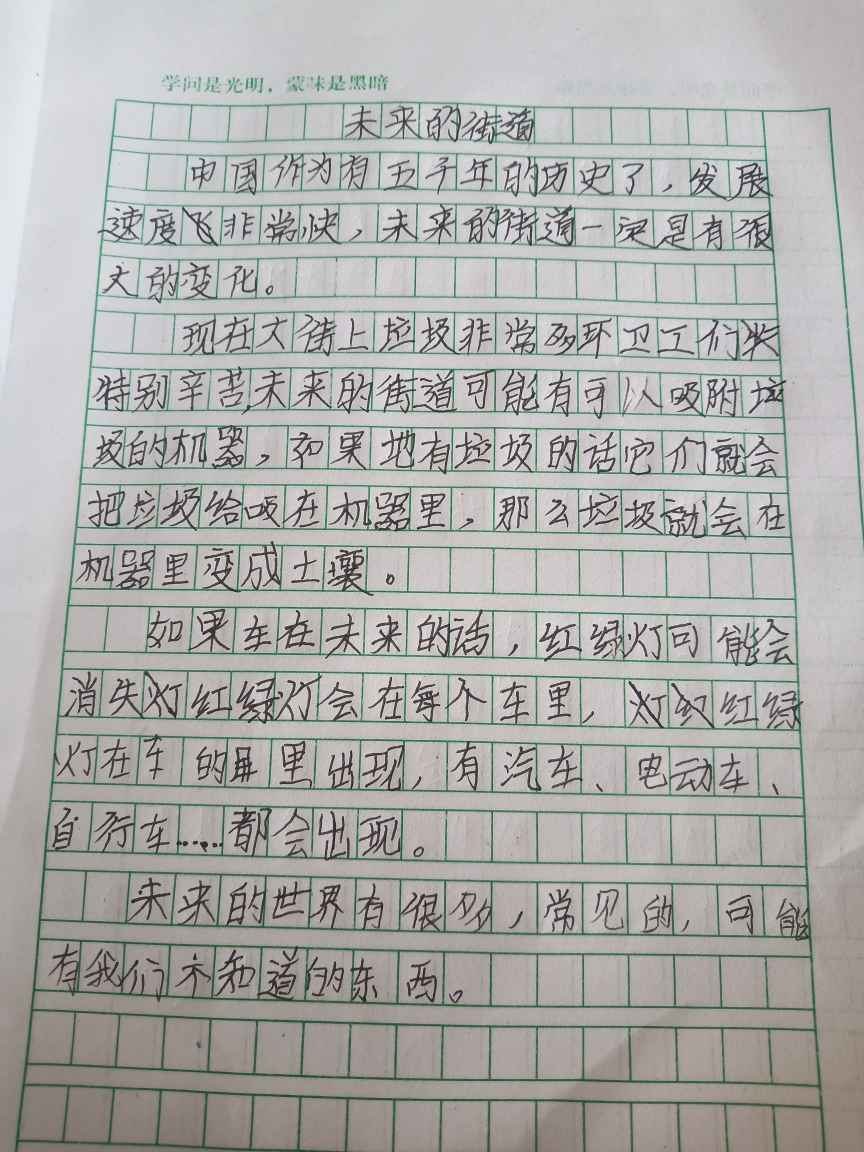 学问是光明，蒙昧是黑暗
未来的街道
中国作为有五千年的历史了，发展
速度非常快，未来的街道一定是有很
大的变化。
现在大街上垃圾非常多环卫工们
特别辛苦，未来的街道可能有可以吸附垃
圾的机器，如果地有垃圾的话它们就会
把垃圾给吸在机器里，那么垃圾就会在
机器里变成土壤。
如果车在未来的话，红绿灯可能会
消失红绿灯会在每个车里，红绿
灯在车的屏里出现，有汽车、电动车、
自行车……都会出现。
未来的世界有很多，常见的，可能
有我们不知道的东西。